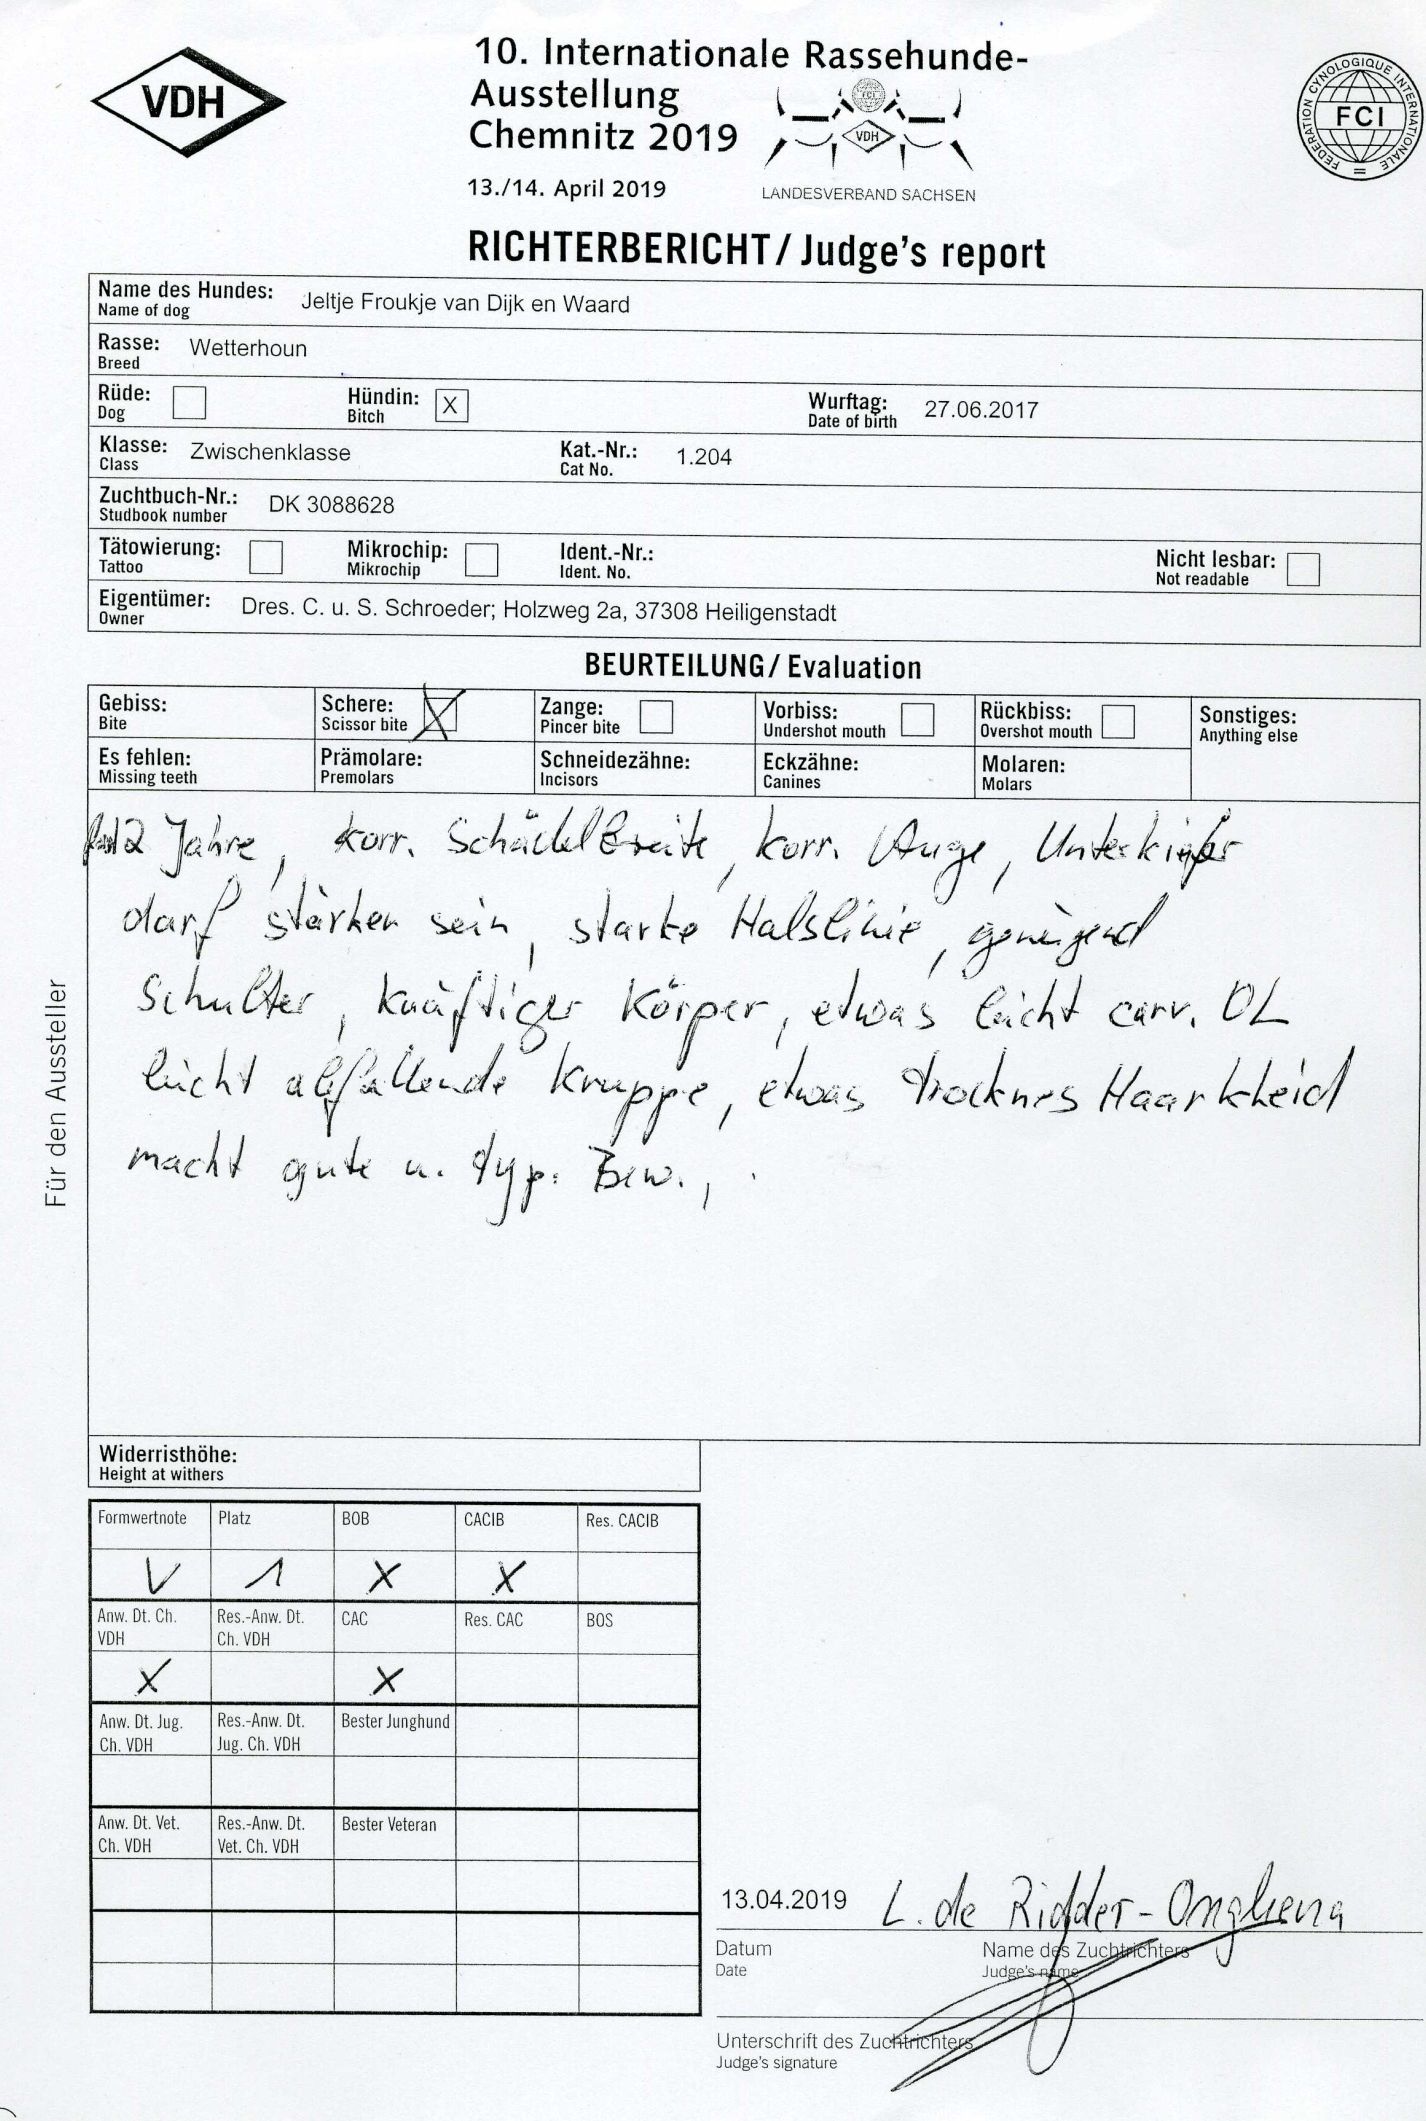 VDH
10. Internationale Rassehunde-
Ausstellung
Chemnitz 2019
13./14. April 2019
FCI
VDH
LANDESVERBAND SACHSEN
FEDERATION CYNOLOGIQUE INTERNATIONALE
FCI
RICHTERBERICHT / Judge's report
Name des Hundes: Jeltje Froukje van Dijk en Waard
Name of dog
Rasse: Wetterhoun
Breed
Rüde: Hündin: X Wurftag: 27.06.2017
Dog Bitch Date of birth
Klasse: Zwischenklasse Kat.-Nr.: 1.204
Class Cat No.
Zuchtbuch-Nr.: DK 3088628
Studbook number
Tätowierung: Mikrochip: Ident.-Nr.: Nicht lesbar:
Tattoo Mikrochip Ident. No. Not readable
Eigentümer: Dres. C. u. S. Schroeder; Holzweg 2a, 37308 Heiligenstadt
Owner
BEURTEILUNG / Evaluation
Gebiss: Schere: X Zange: Vorbiss: Rückbiss: Sonstiges:
Bite Scissor bite Pincer bite Undershot mouth Overshot mouth Anything else
Es fehlen: Prämolare: Schneidezähne: Eckzähne: Molaren:
Missing teeth Premolars Incisors Canines Molars
2 Jahre, korr. Schädelbreite, korr. Auge, Unterkiefer
darf stärker sein, starke Halslinie, genügend
Schulter, kräftiger Körper, etwas leicht carv. OL
leicht abfallende Kruppe, etwas trocknes Haarkleid
macht gute u. typ. Bew.,
Für den Aussteller
Widerristhöhe:
Height at withers
Formwertnote Platz BOB CACIB Res. CACIB
V 1 X X
Anw. Dt. Ch. Res.-Anw. Dt. CAC Res. CAC BOS
VDH Ch. VDH
X X
Anw. Dt. Jug. Res.-Anw. Dt. Bester Junghund
Ch. VDH Jug. Ch. VDH
Anw. Dt. Vet. Res.-Anw. Dt. Bester Veteran
Ch. VDH Vet. Ch. VDH
13.04.2019 L. de Ridder-Onghena
Datum Name des Zuchtrichters
Date Judge's name
Unterschrift des Zuchtrichters
Judge's signature